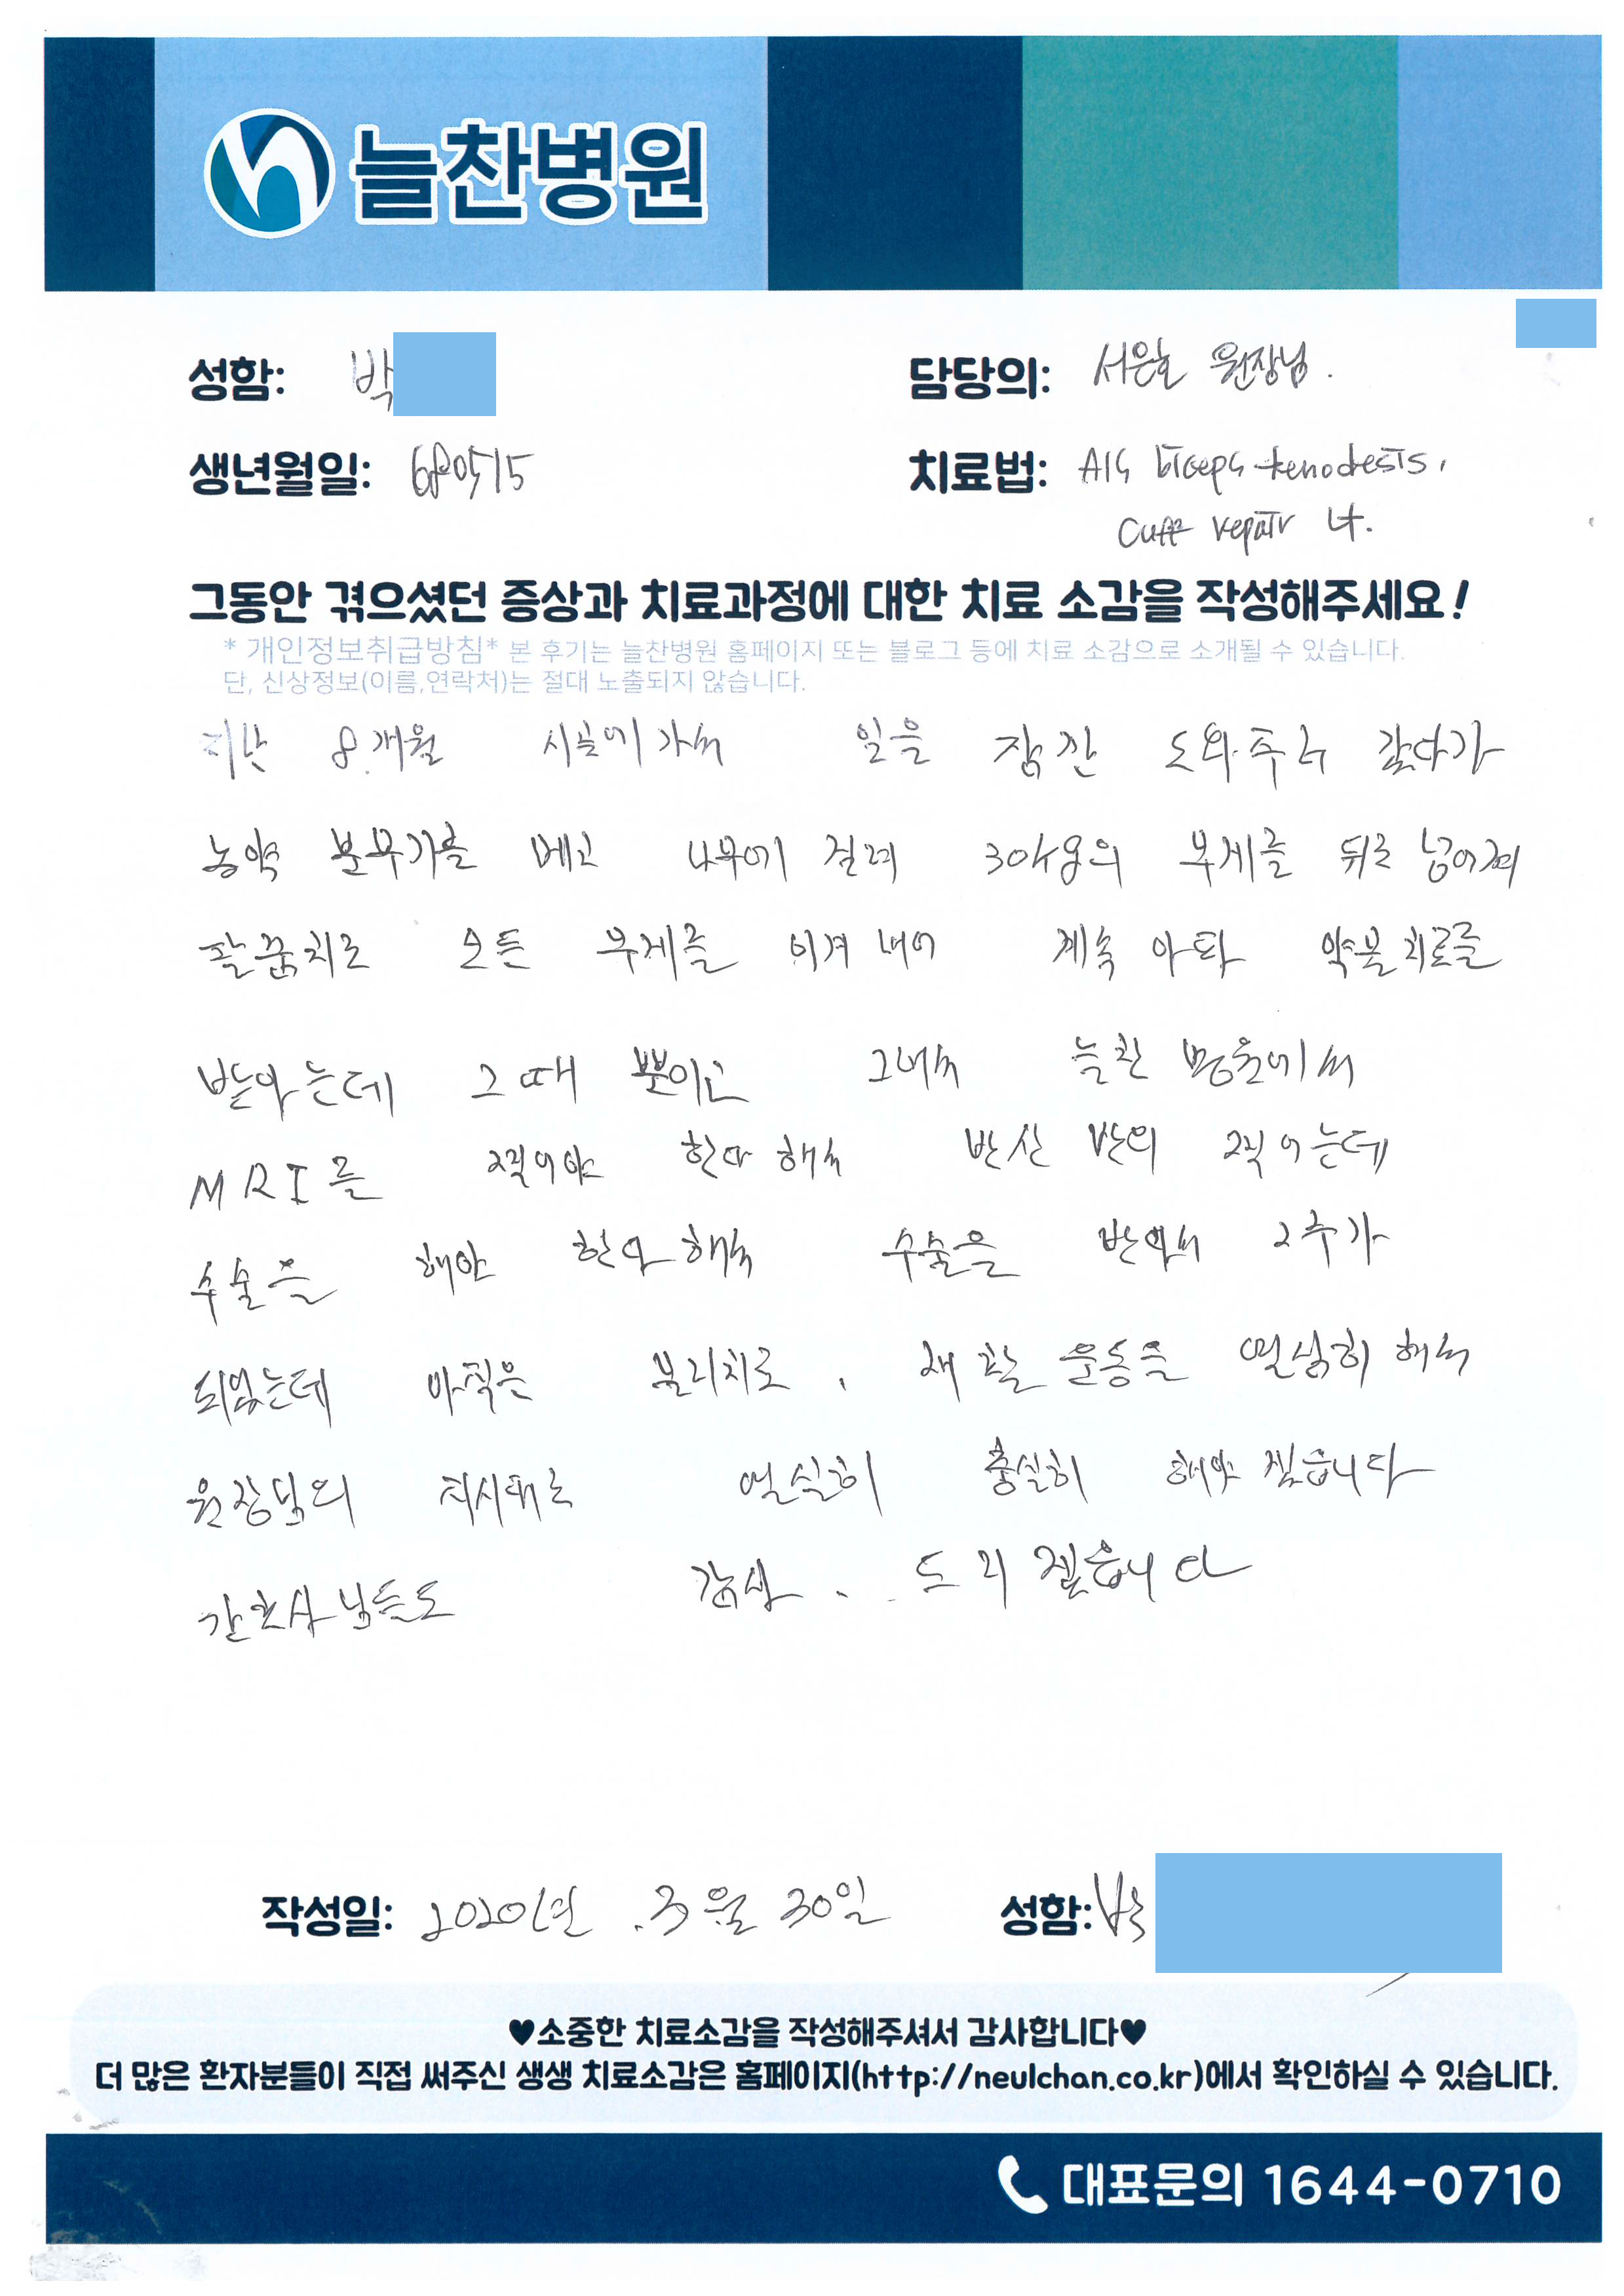 늘찬병원
성함: 박
담당의: 서은호 원장님.
생년월일: 680515
치료법: A/S biceps tenodesis,
Cuff repair Lt.
그동안 겪으셨던 증상과 치료과정에 대한 치료 소감을 작성해주세요!
* 개인정보취급방침* 본 후기는 늘찬병원 홈페이지 또는 블로그 등에 치료 소감으로 소개될 수 있습니다.
단, 신상정보(이름,연락처)는 절대 노출되지 않습니다.
지난 8개월 시골에 가서 일을 잠깐 도와주러 갔다가
농약 분무기를 메고 나무에 걸려 30kg의 무게를 뒤로 넘어져
팔꿈치로 모든 무게를 이겨 내어 계속 아파 약물치료를
받아는데 그때 뿐이고 그래서 늘찬 병원에서
MRI를 찍어야 한다 해서 반신 반의 찍어는데
수술을 해야 한다 해서 수술을 받아서 2주가
되었는데 아직은 물리치로, 재활 운동을 열심히 해서
원장님의 지시대로 열심히 충실히 해야 겠습니다
간호사님들도 감사.. 드리겠습니다
작성일: 2020년.3월 30일 성함: 박
♥소중한 치료소감을 작성해주셔서 감사합니다♥
더 많은 환자분들이 직접 써주신 생생 치료소감은 홈페이지(http://neulchan.co.kr)에서 확인하실 수 있습니다.
대표문의 1644-0710